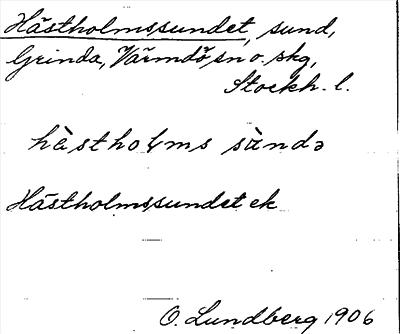 Hästholmssundet, sund,
Grinda, Värmdö sn o. skg,
Stockh. l.
hàsthoɫms sàndə
Hästholmssundet ek
O. Lundberg 1906